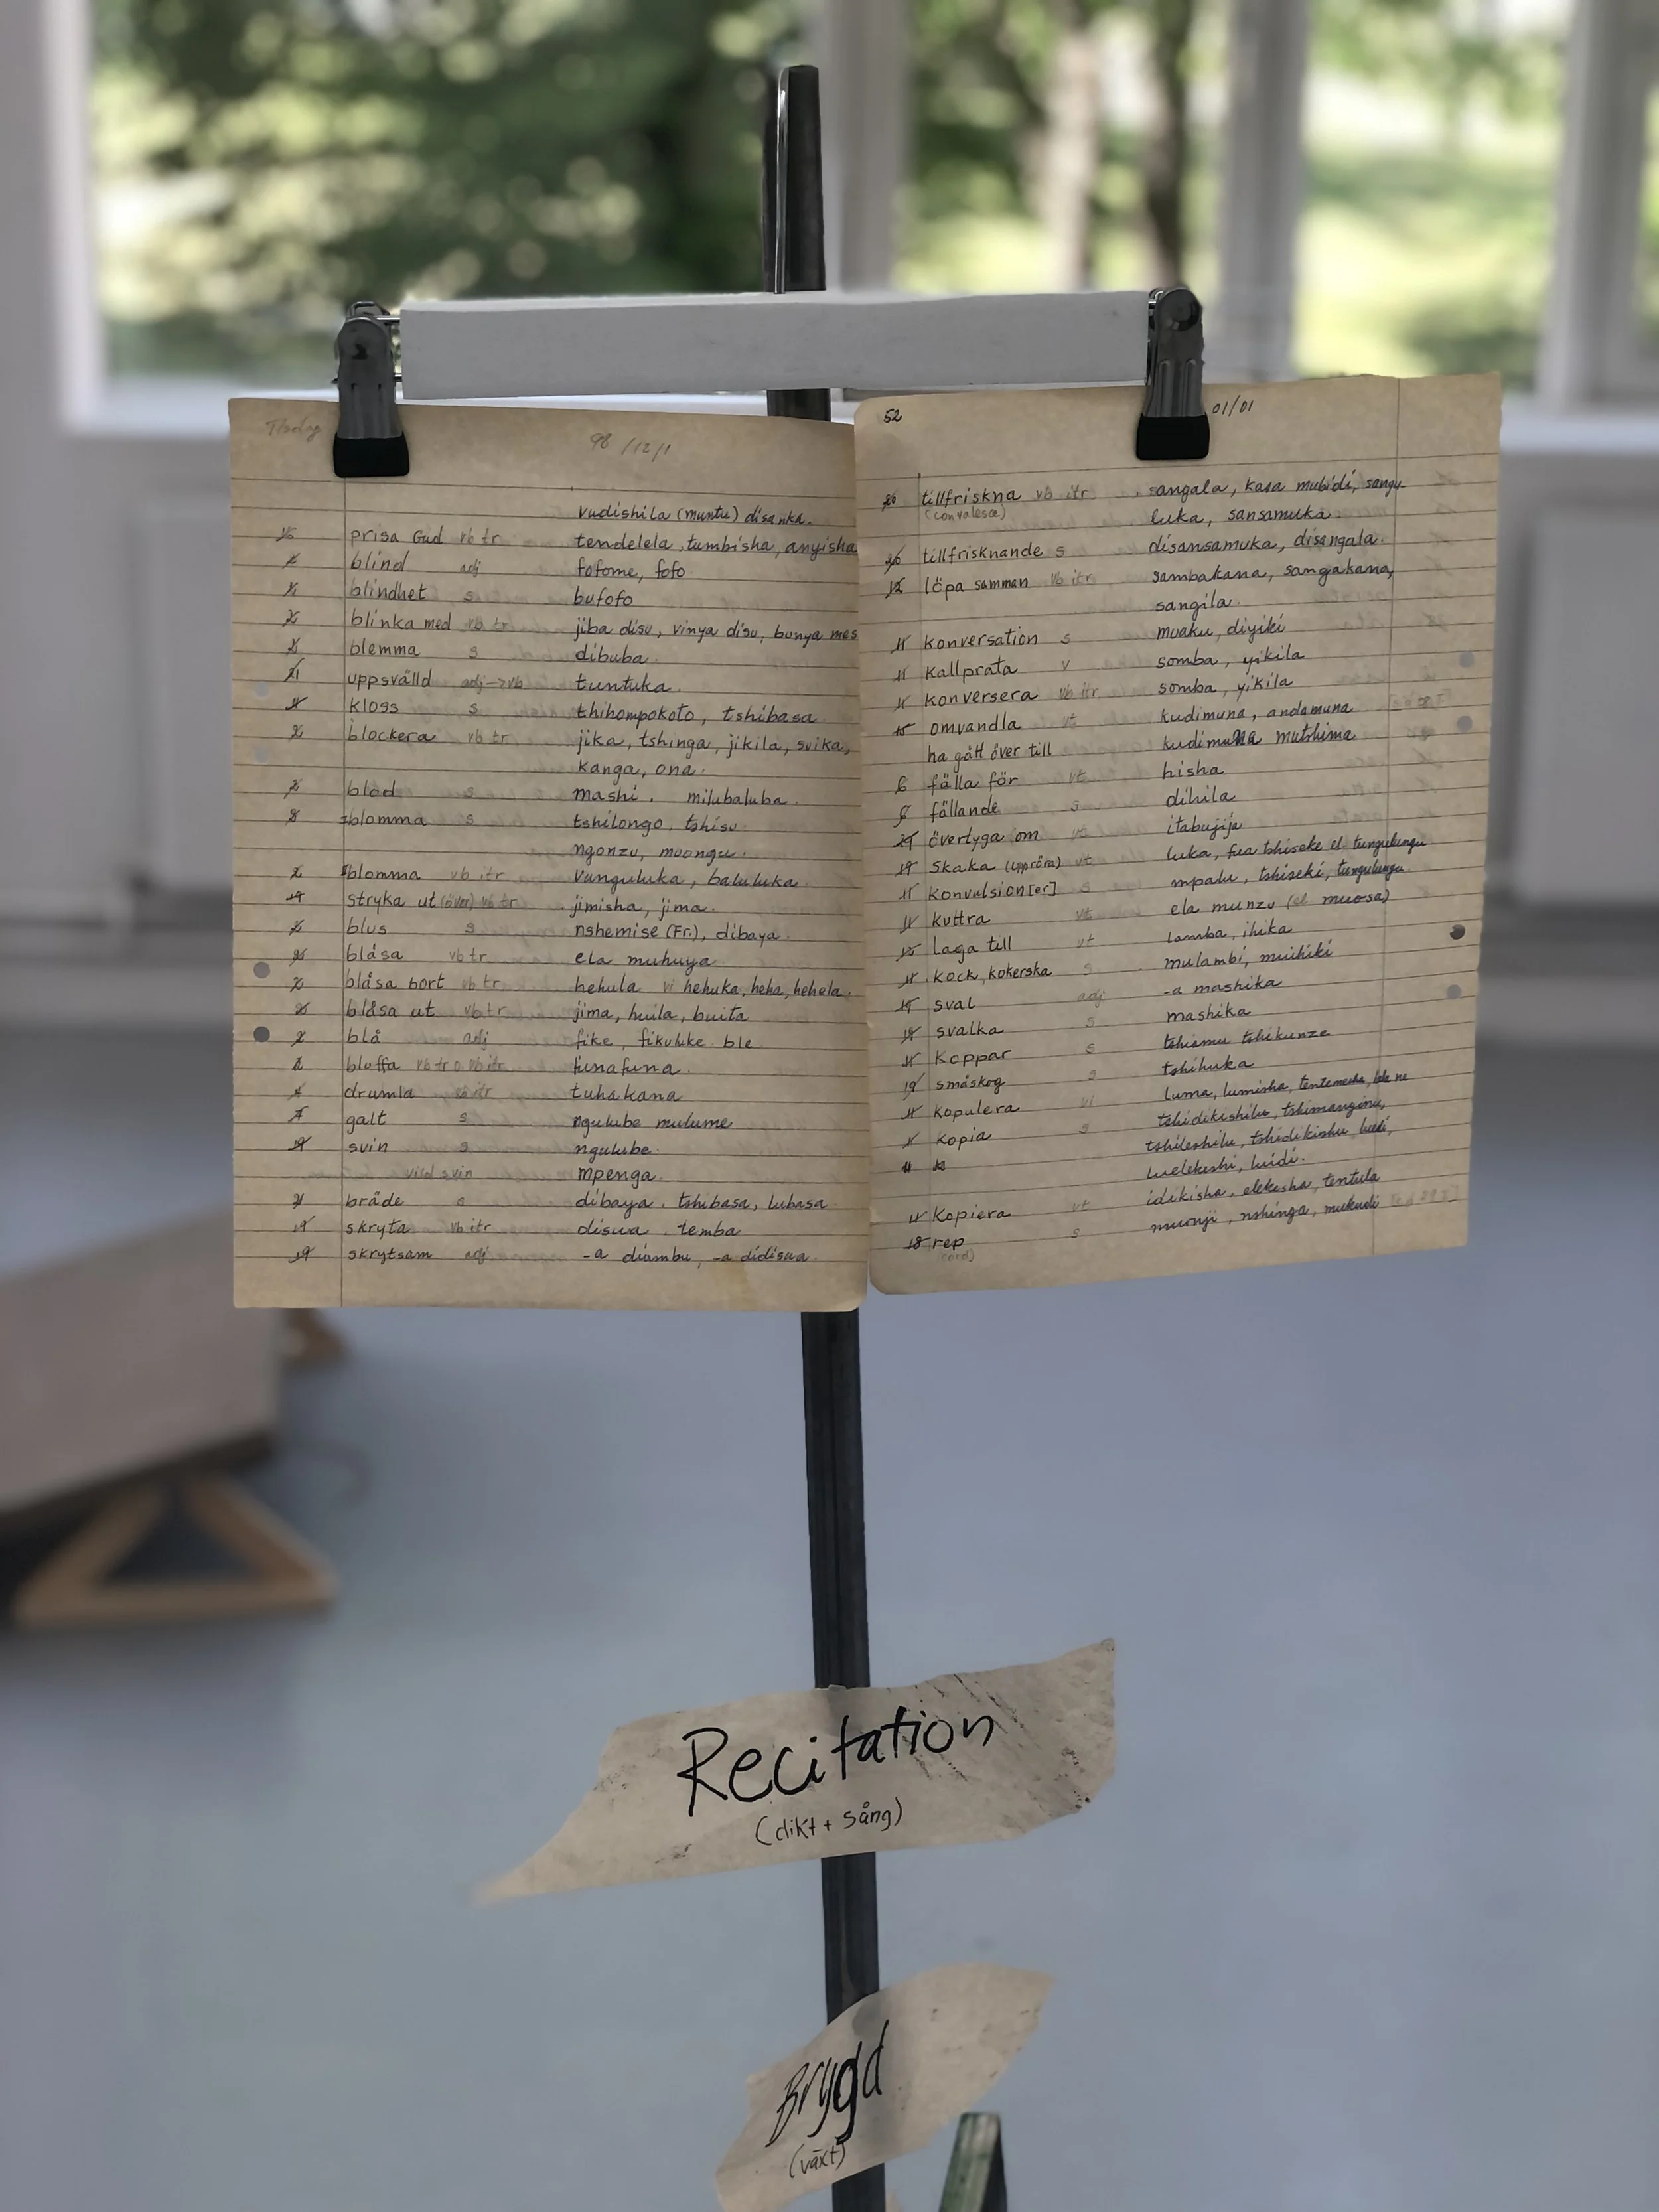 98/12/1
vudishila (muntu) disanka.
prisa Gud vb tr tendelela, tumbisha, anyisha
blind adj fofome, fofo
blindhet s bufofo
blinka med vb tr jiba disu, vinya disu, bunya mes
blemma s dibuba
uppsvälld adj→vb tuntuka.
kloss s tshibasa
blockera vb tr jika, tshinga, jikila, suika,
kanga, ona.
blod s mashi. milubaluba.
blomma s tshilongo, tshisu
ngonzu, muongu.
blomma vb itr vunguluka, baluluka
stryka ut (över) vb tr jimisha, jima.
blus s nshemise (Fr.), dibaya
blåsa vb tr ela muhuya
blåsa bort vb tr hehula vi hehuka, heha, hehela
blåsa ut vb tr jima, huila, buita
blå adj fike, fikuluke ble
bluffa vb tr o. vb itr funafuna.
drumla vb itr tuhakana
galt s ngulube mulume
svin s ngulube.
vild svin mpenga
bräde s dibaya, tshibasa, lubasa
skryta vb itr disua, temba
skrytsam adj -a diambu, -a didisua
52 01/01
26 tillfriskna vb itr sangala, kasa mubidi, sangu-
(convalesce) luka, sansamuka
26 tillfrisknande s disansamuka, disangala.
12 löpa samman vb itr sambakana, sangakana,
sangila.
11 konversation s muaku, diyiki
11 kallprata v somba, yikila
11 konversera vb itr somba, yikila
15 omvandla vt kudimuna, andamuna
ha gått över till kudimuna mutshima
6 fälla för vt hisha
6 fällande s dihila
29 övertyga om vt itabujija
19 skaka (uppröra) vt luka, fua tshiseke el tungulungu
11 konvulsion[er] s mpalu, tshiseki, tungulungu
11 kuttra vt ela munzu (el muosa)
12 laga till vt lamba, ihika
11 kock, kokerska s mulambi, muihiki
19 sval adj -a mashika
19 svalka s mashika
11 koppar s tshiamu tshikunze
19 småskog s tshihuka
11 kopulera vi luma, lumisha,
kopia s tshidikishilu, tshimanginu,
tshileshilu, tshidikishu, luidi,
luelekeshi, luidi.
11 kopiera vt idikisha, elekesha, tentula
18 rep s muonji, nshinga, mukudi
Recitation
(dikt + sång)
Brygd
(växt)